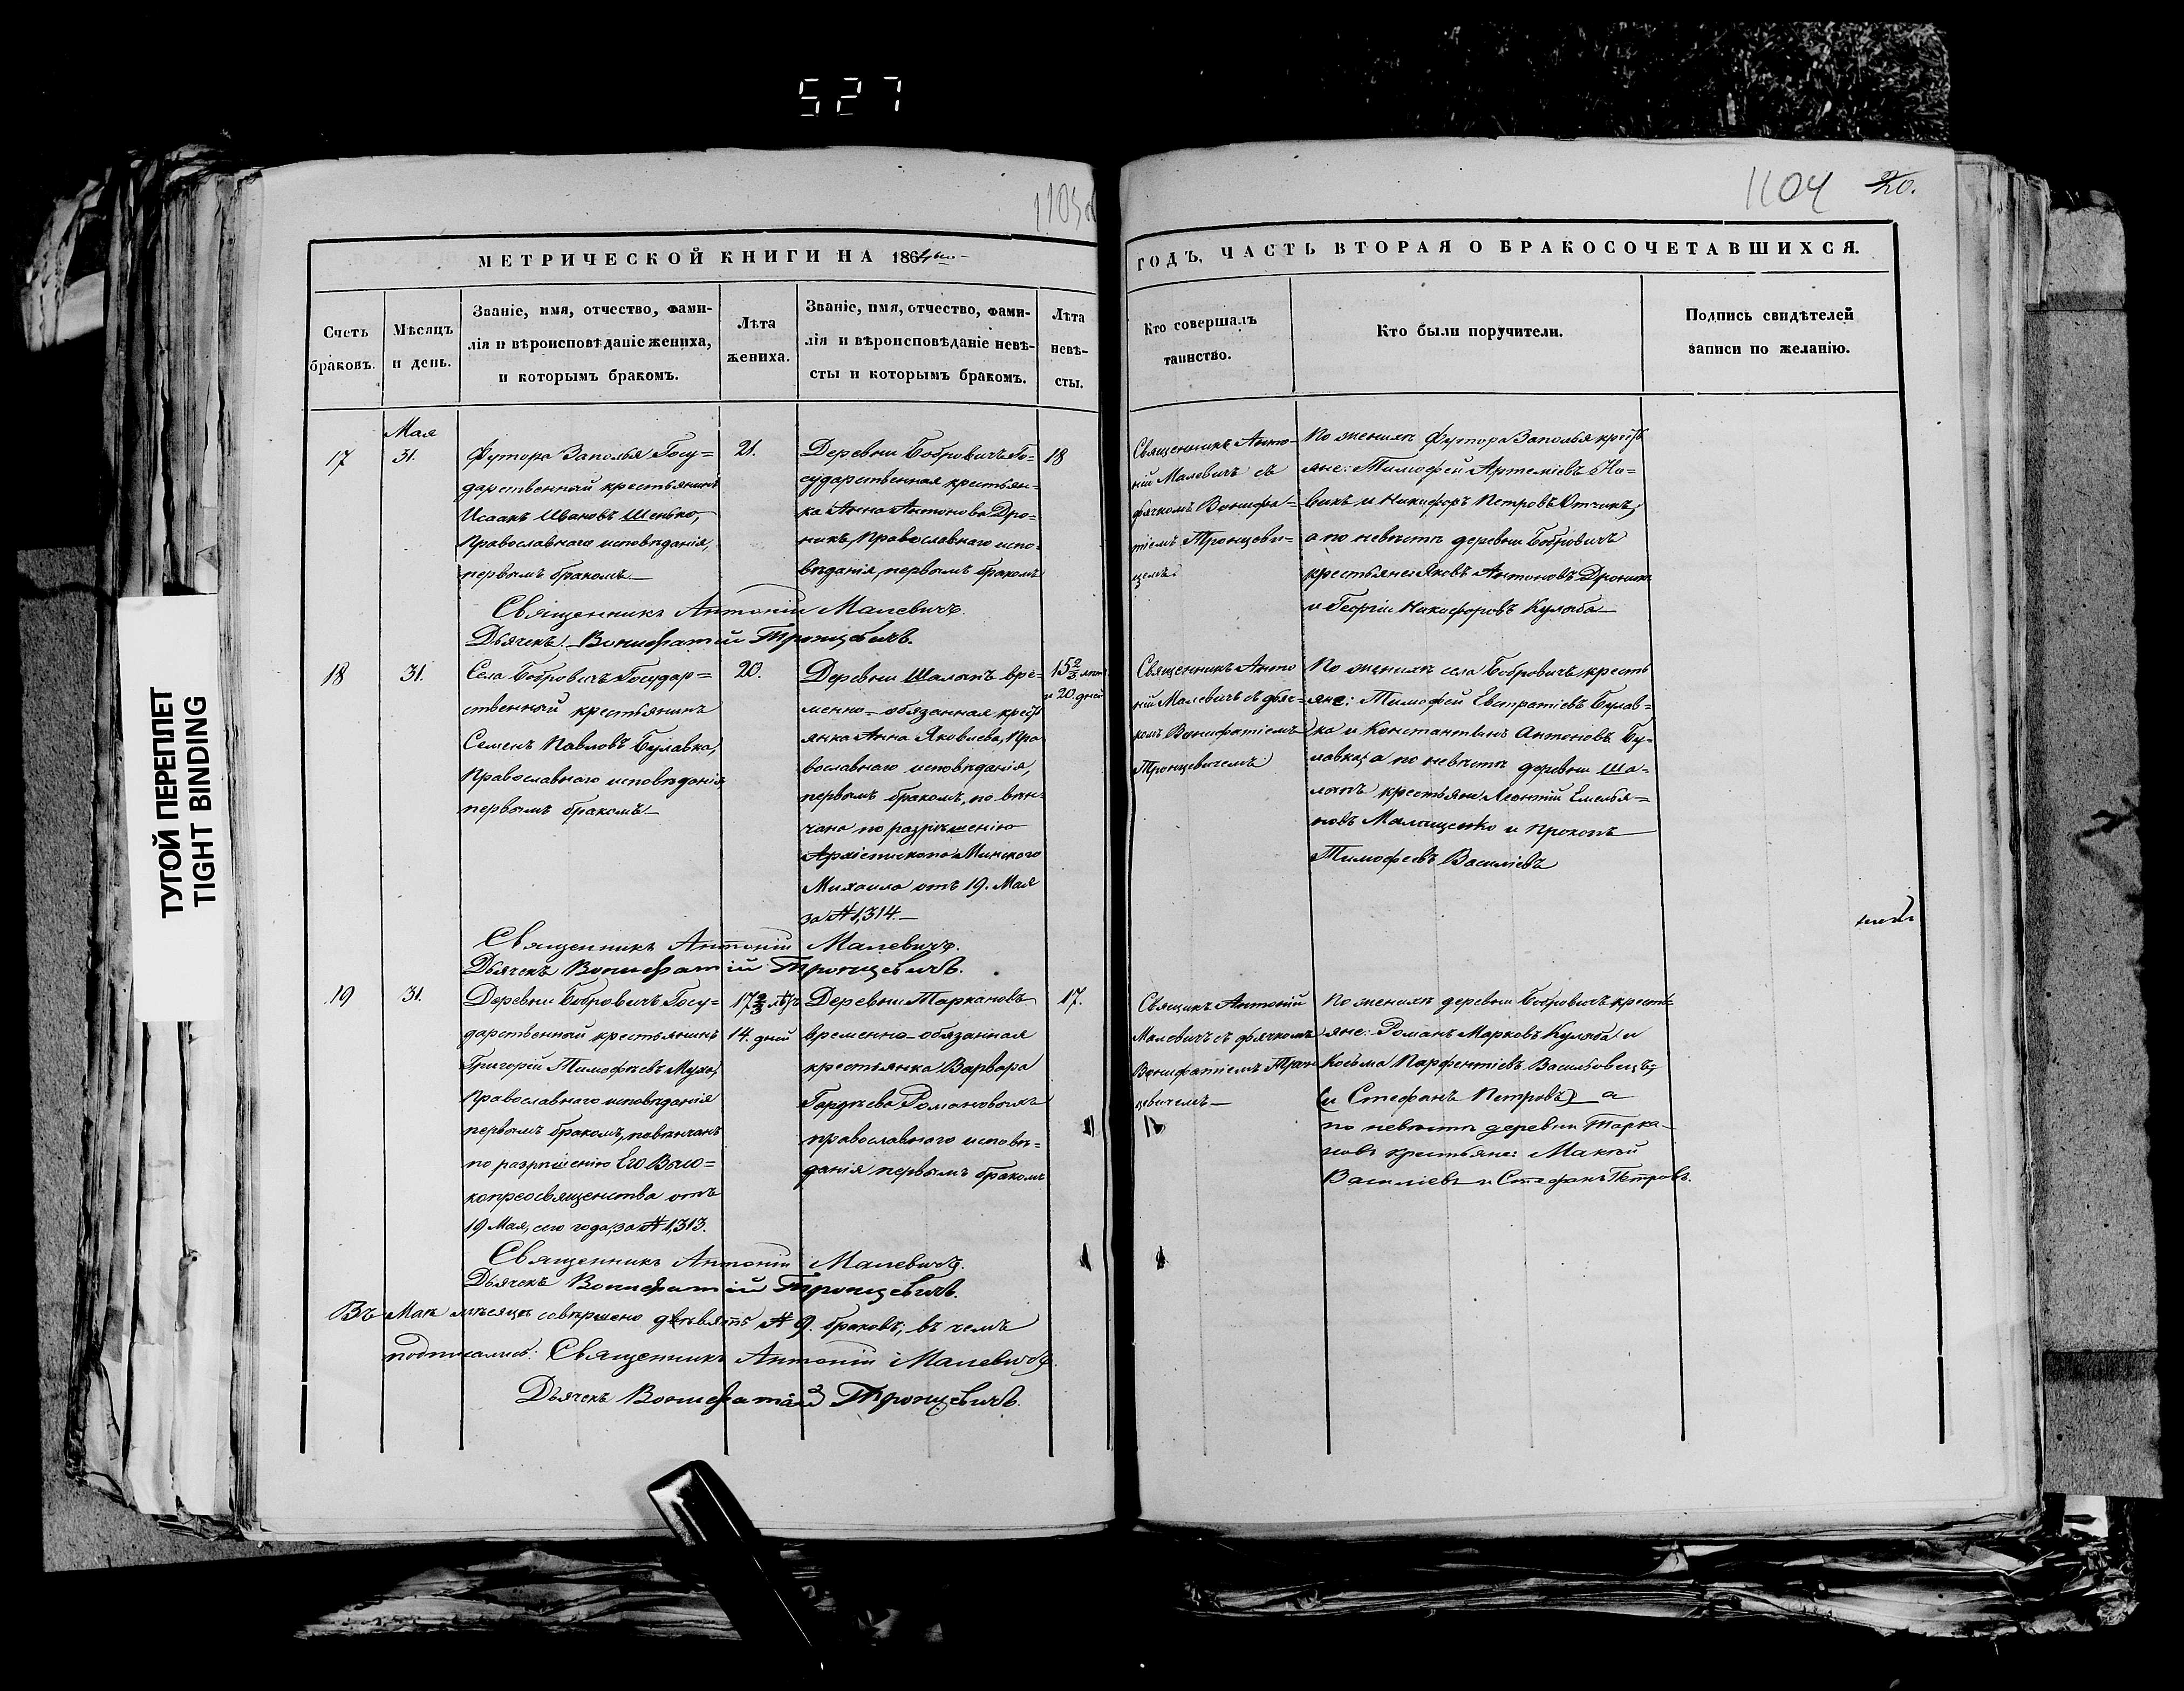 527
1104 20.
МЕТРИЧЕСКОЙ КНИГИ НА 1864
ГОДЪ, ЧАСТЬ ВТОРАЯ О БРАКОСОЧЕТАВШИХСЯ.
Счетъ браковъ.
Мѣсяцъ и день.
Званіе, имя, отчество, фами-
лія и вѣроисповѣданіе жениха,
и которымъ бракомъ.
Лѣта жениха.
Званіе, имя, отчество, фами-
лія и вѣроисповѣданіе невѣ-
сты и которымъ бракомъ.
Лѣта невѣ-
сты.
Кто совершалъ
таинство.
Кто были поручители.
Подпись свидѣтелей
записи по желанію.
17
Мая
31.
Футора Заполья Госу=
дарственный крестьянинъ
Исаакъ Ивановъ Шенько,
Православнаго исповѣданія,
первымъ бракомъ
21.
Деревни Бобровичъ Го=
сударственная крестьян-
ка Анна Антонова Дро=
никъ, Православнаго испо-
вѣданія, первымъ бракомъ
18
Священникъ Анто-
ній Малевичъ съ
дьячкомъ Вонифа=
тіемъ Тронцеви=
чемъ
По женихѣ футора Заполья крестья
яне: Тимофей Артеміевъ
и Никифоръ Петровъ
а по невѣстѣ деревни Бобровичъ
крестьяне Яковъ Антоновъ Дроникъ
и Георгій Никифоровъ Куляба
Священникъ Антоній Малевичъ.
Дьячекъ Вонифатій Тронцевичъ.
18
31.
Села Бобровичъ Государ=
ственный крестьянинъ
Семенъ Павловъ Булавка,
Православнаго исповѣданія
первымъ бракомъ
20.
Деревни Шалапъ вре=
менно-обязанная крест
янка Анна Яковлева, Пра
вославнаго исповѣданія,
первымъ бракомъ, по вѣн-
чана по разрѣшенію
Архіепископа Минского
Михаила отъ 19. Мая
за № 1,314.
15 2/3 лѣтъ
и 20. дней
Священникъ Анто
ній Малевичъ съ дьяч-
комъ Вонифатіемъ
Тронцевичемъ
По женихѣ села Бобровичъ кресть
яне: Тимофей Евстратіевъ Булав=
ка и Константинъ Антоновъ Бу=
лавка; а по невѣстѣ деревни Ша=
лапъ крестьяне Леонтій Емелья=
новъ Малащенко и Прокопъ
Тимофеевъ Василіевъ
Священникъ Антоній Малевичъ.
Дьячекъ Вонифатій Тронцевичъ.
19
31.
Деревни Бобровичъ Госу-
дарственный крестьянинъ
Григорій Тимофѣевъ Муха,
Православнаго исповѣданія
первымъ бракомъ, повѣнчанъ
по разрѣшенію Его Высо=
копреосвященства отъ
19 Мая, сего года, за № 1,313.
17 2/3 лѣтъ
14. дней
Деревни Тарканова
временно-обязанная
крестьянка Варвара
Гордѣева Романовыхъ
православного исповѣ=
данія первымъ бракомъ
17.
Священикъ Антоній
Малевичъ съ дьячкомъ
Вонифатіемъ Трон
цевичемъ
По женихѣ деревни Бобровичъ кресть=
яне: Романъ Марковъ Куляба и
Косьма Парфентіевъ Васильовецъ;
(и Стефанъ Петровъ) а
по невѣстѣ деревни Тарка-
новъ крестьяне:
Василіевъ и Стефанъ Петровъ.
Священникъ Антоній Малевичъ.
Дьячекъ Вонифатій Тронцевичъ.
Въ Маѣ мѣсяцѣ совѣршено дѣвять № 9. браковъ; въ чемъ
подписались: Священникъ Антоній Малевичъ.
Дьячекъ Вонифатій Тронцевичъ.
ТУГОЙ ПЕРЕПЛЕТ
TIGHT BINDING